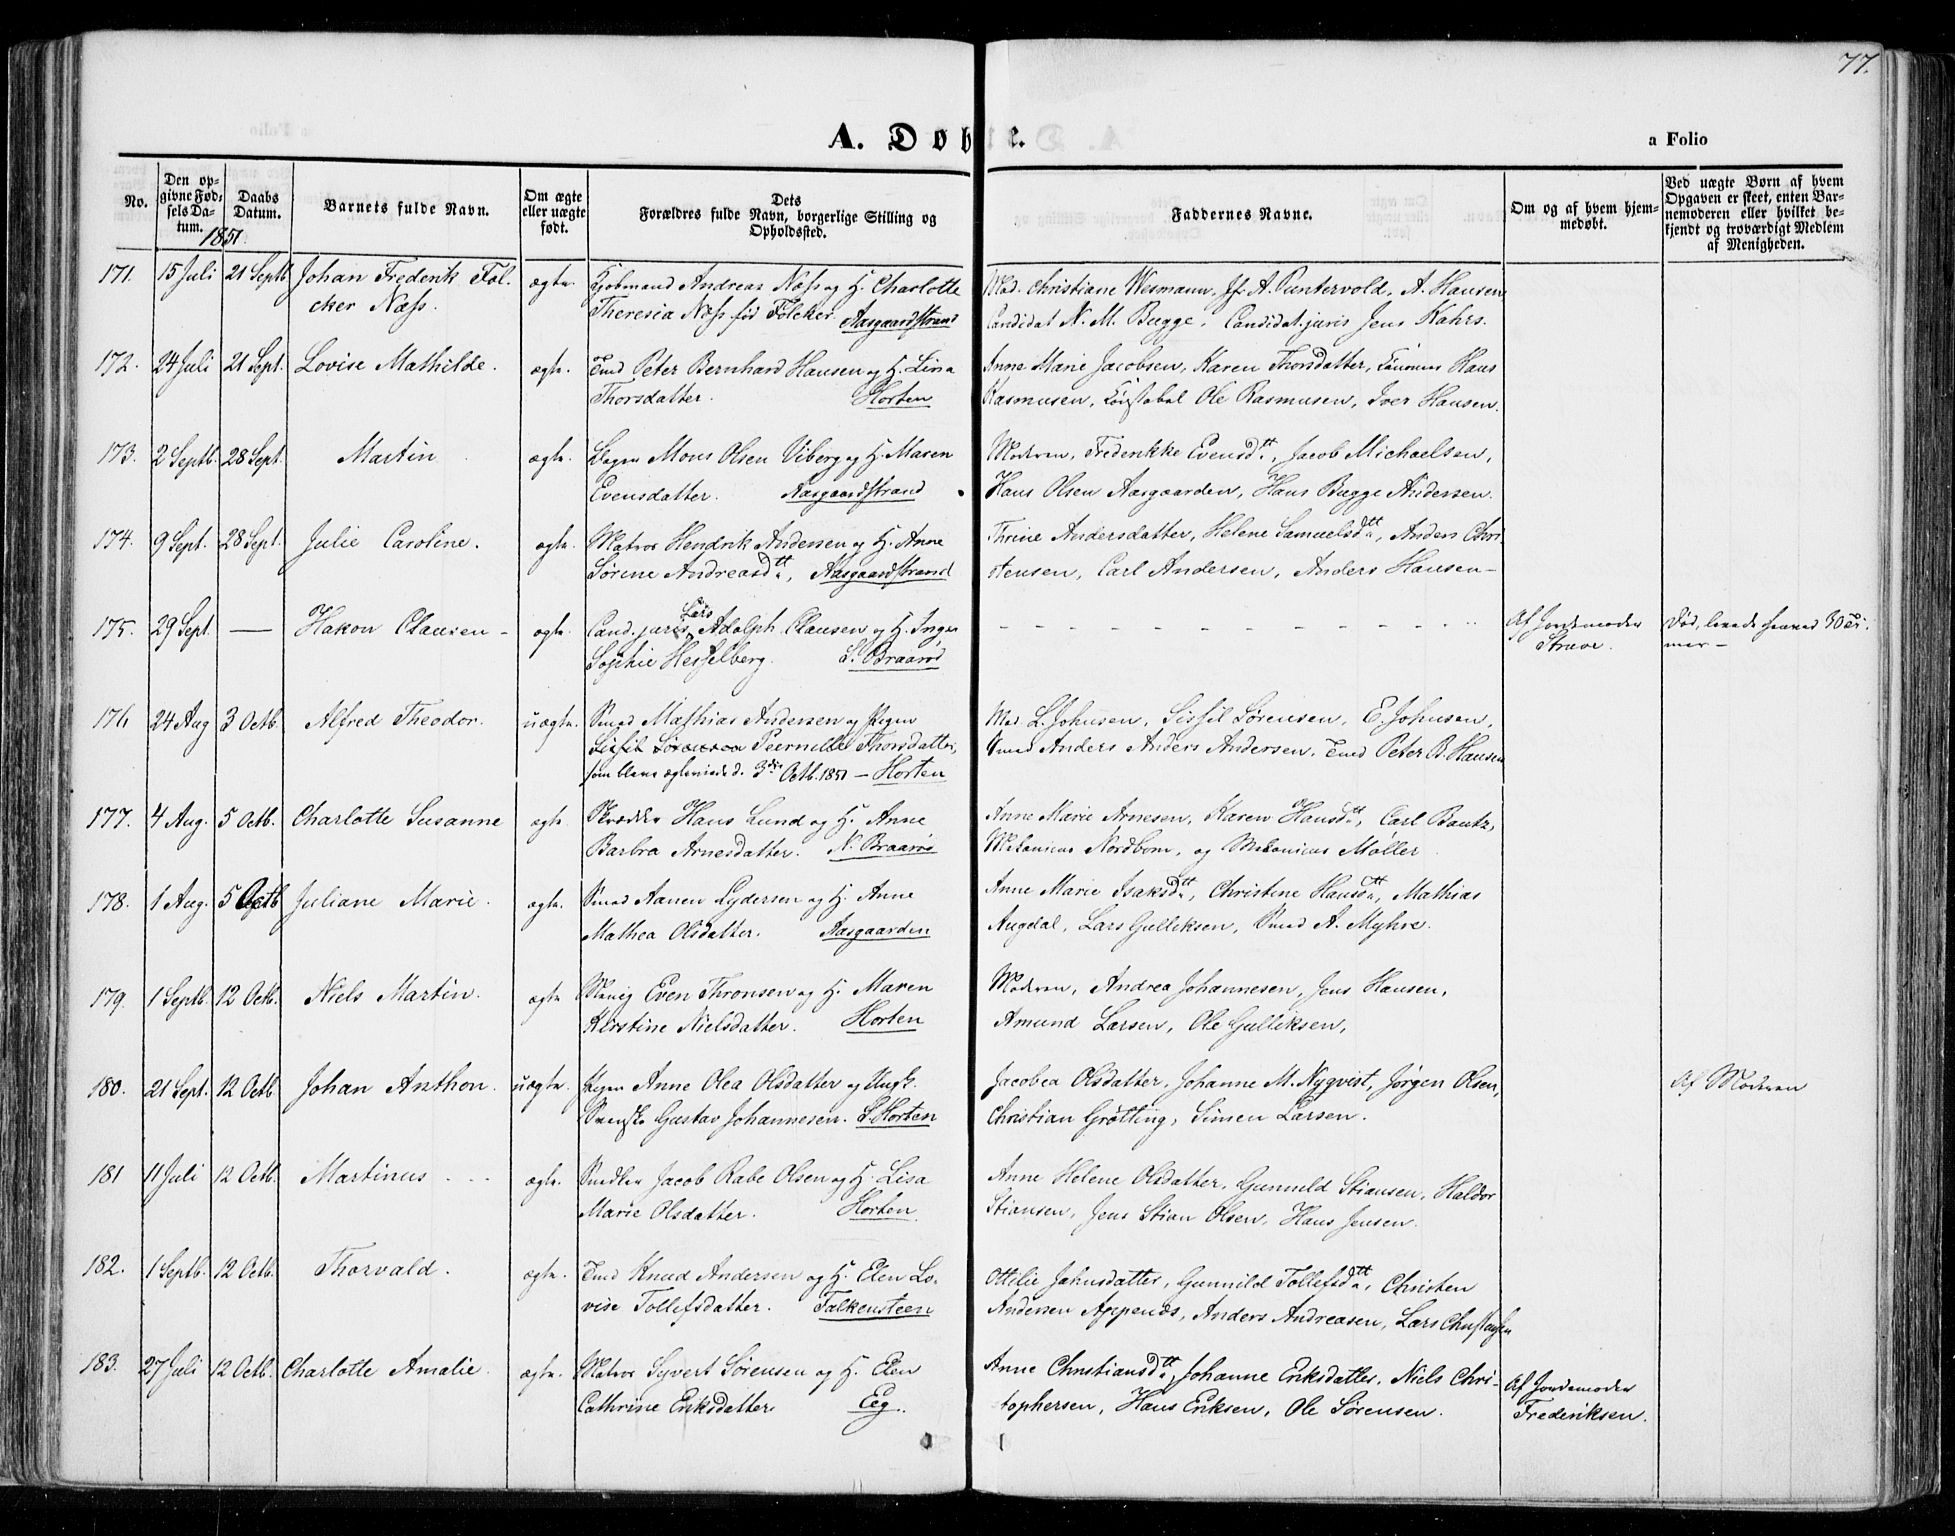 77.
A. Døbte.
a Folio
No.
Den opgivne Fødselsdatum.
Daabs Datum.
Barnets fulde Navn.
Om ægte eller uægte født.
Dets Forældres fulde Navn, borgerlige Stilling og Opholdssted.
Faddernes Navne.
Om og af hvem hjemmedøbt.
Ved uægte Børn af hvem Opgaven er skeet, enten Barnemoderen eller hvilket bekjendt og troværdigt Medlem af Menigheden.
1851.
171. 15 Juli 21 Septb Johan Frederik Fol- ægte. Kjøbmand Andreas Næss og H. Charlotte Mad. Christiane Wesmann, Jf A. Puntervold, A. Hansen
cker Næss. Theresia Næss fød Folcker Aasgaardstrand Candidat N. M. Bugge, Candidat juris Jens Kahrs.
172. 24 Juli 21 Sept. Lovise Mathilde. ægte. Tmd Peter Bernhard Hansen og H. Lisa Anne Marie Jacobsen, Karen Thorsdatter, Hans
Thorsdatter. Horten Rasmusen, Constabel Ole Rasmusen, Iver Hansen.
173. 2 Septb. 28 Sept. Martin ægte. Mons Olsen Viberg og H. Maren Moderen, Frederikke Evensdtt, Jacob Michaelsen,
Evensdatter. Aasgaardstrand Hans Olsen Aasgaarden, Hans Bugge Andersen.
174. 9 Sept. 28 Sept. Julie Caroline. ægte. Matros Hendrik Andersen og H. Anne Thrine Andersdatter, Helene Samuelsdtt, Anders Chri-
Sørine Andreasdtt, Aasgaardstrand stensen, Carl Andersen, Anders Hansen -
175. 29 Sept. — Hakon Clausen - ægte. Cand. juris Lars Adolph Clausen og H. Inger - - - - - - - - - - Af Jordemoder Død, levede 30 Ti-
Sophie Hesselberg. S. Braarød Struve. mer -
176 24 Aug 3 Octb. Alfred Theodor. uægte. Smed Mathias Andersen og Pigen Mad L. Johnsen, Sissil Sørensen, E. Johnsen,
Sissil Sørensen Peernille Thorsdatter, Smed Anders Anders Andersen, Tmd Peter B. Hansen
som bleve ægteviede d. 3die Octb. 1851 - Horten
177. 4 Aug. 5 Octb. Charlotte Susanne ægte Skrædder Hans Lund og H. Anne Anne Marie Arnesen, Karen Hansdtt, Carl Bautz,
Barbra Arnesdatter. N. Braarød Mekanicus Nordbom, og Mekanicus Møller
178. 1 Aug. 5 Octb Juliane Marie. ægte. Smed Aanen Lydersen og H. Anne Anne Marie Isaksdtt, Christine Hansdtt, Mathias
Mathea Olsdatter. Aasgaarden Augdal, Lars Gulliksen, Smed A. Myhre.
179. 1 Septb. 12 Octb. Niels Martin. ægte Even Thronsen og H. Maren Moderen, Andrea Johannesen, Jens Hansen,
Kirstine Nielsdatter. Horten Amund Larsen, Ole Gulliksen,
180. 21 Sept. 12 Octb Johan Anthon. uægte. Pigen Anne Olea Olsdatter og Ungk. Jacobea Olsdatter, Johanne M. Nygvist, Jørgen Olsen, Af Moderen
Svenske Gustav Johannesen. S. Horten Christian Grøtting, Simen Larsen.
181 11 Juli 12 Octb. Martinus - - - ægte. Snedker Jacob Rabe Olsen og H. Lisa Anne Helene Olsdatter, Gunnild Stiansen, Haldor
Marie Olsdatter. Horten Stiansen, Jens Stian Olsen, Hans Jensen.
182. 1 Septb. 12 Octb. Thorvald. ægte. Tmd Knud Andersen og H. Elen Lo- Ottilie Jahnsdatter, Gunnild Tollefsdtt, Christen
vise Tollefsdatter. Falkensteen Andersen Appenæs, Anders Andreasen, Lars Christensen
183. 27 Juli 12 Octb. Charlotte Amalie. ægte. Matros Syvert Sørensen og H. Elen Anne Christiansdtt, Johanne Eriksdatter, Niels Chri- Af Jordemoder
Cathrine Eriksdatter Eeg. stophersen, Hans Eriksen, Ole Sørensen. Frederiksen.